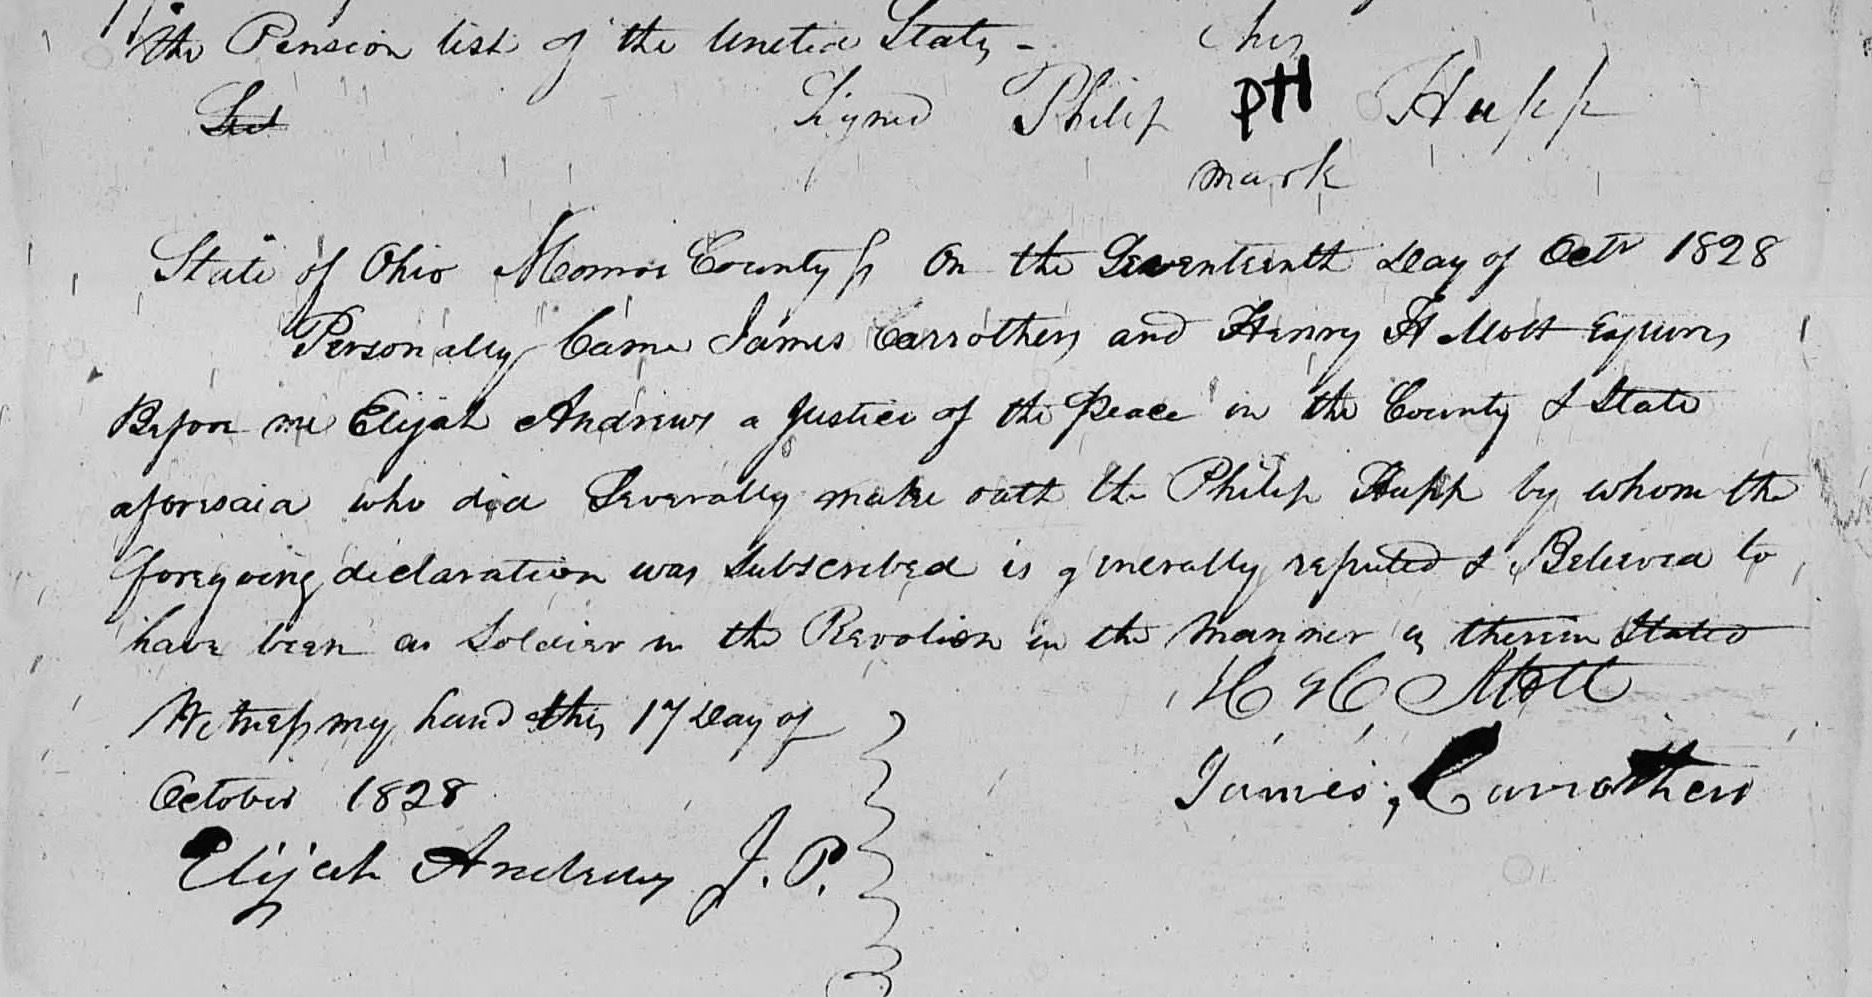 the Pension list of the United States -
his
Signed Philip PH Hupp
mark
State of Ohio Monroe County ss On the Seventeenth Day of Octr 1828
Personally Came James Carrothers and Henry H Mott Esquires
Before me Elijah Andrews a Justice of the Peace in the County & State
aforesaid who did Severally make oath th Philip Hupp by whom the
foregoing declaration was Subscribed is generally reputed & Believed to
have been as Soldier in the Revolion in the Manner as therein Stated
Witness my hand this 17 Day of
October 1828
H H Mott
James Carrothers
Elijah Andrews J. P.